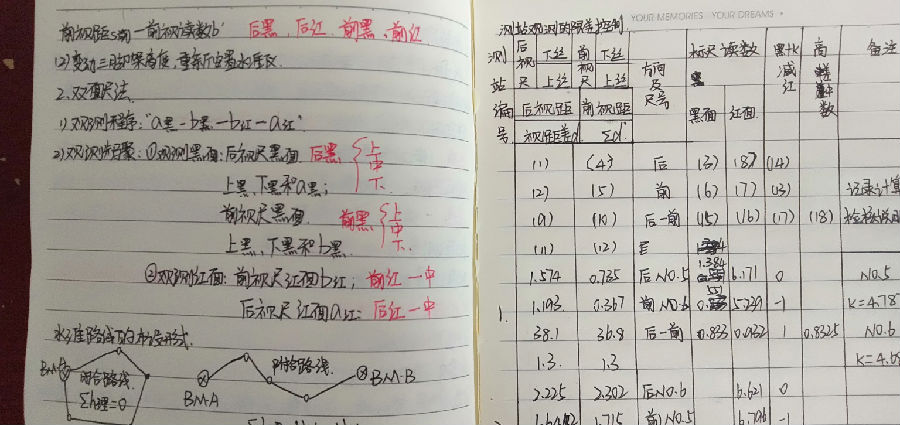 前视距s前—前视读数b 后黑,后红,前黑,前红
(2)变动三脚架高度,重新安置水准仪
2、双面尺法
1)观测程序:"a黑-b黑-b红-a红"
2)观测步骤:①观测黑面:后视尺黑面 后黑{上 中 下
上黑,下黑和a黑;
前视尺黑面 前黑{上 中 下
上黑、下黑和b黑
②观测红面:前视尺红面b红;前红一中
后视尺红面a红;后红一中
水准路线的布设形式
BM-A
闭合路线
Σh理=0
BM-A
附合路线
BM-B
YOUR MEMORIES YOUR DREAMS
测站观测的限差控制
测站编号 后视尺 下丝 上丝 前视尺 下丝 上丝 方向及尺号 标尺读数 黑+K减红 高 数 备注
后视距 前视距 黑面 红面
视距差d Σd
(1) (4) 后 (3) (8) (14)
(2) (5) 前 (6) (7) (13) 记录计算
(9) (10) 后-前 (15) (16) (17) (18)
(11) (12)
1.574 0.735 后NO.5 1.384 6.171 0 NO.5
1. 1.193 0.367 前NO.6 0.551 5.239 -1 K=4.787
38.1 36.8 后-前 0.833 0.932 1 0.8325 NO.6
1.3 1.3 K=4.68
2.225 2.302 后NO.6 6.621 0
1.715 前NO.5 6.796 -1